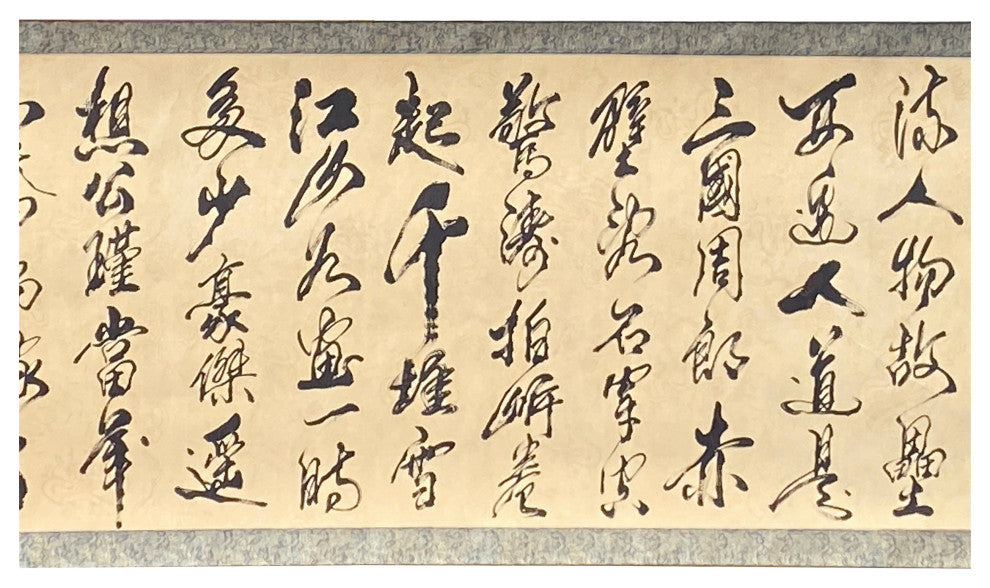 流人物故壘
西邊人道是
三國周郎赤
壁亂石穿空
驚濤拍岸卷
起千堆雪
江山如畫一時
多少豪傑遙
想公瑾當年